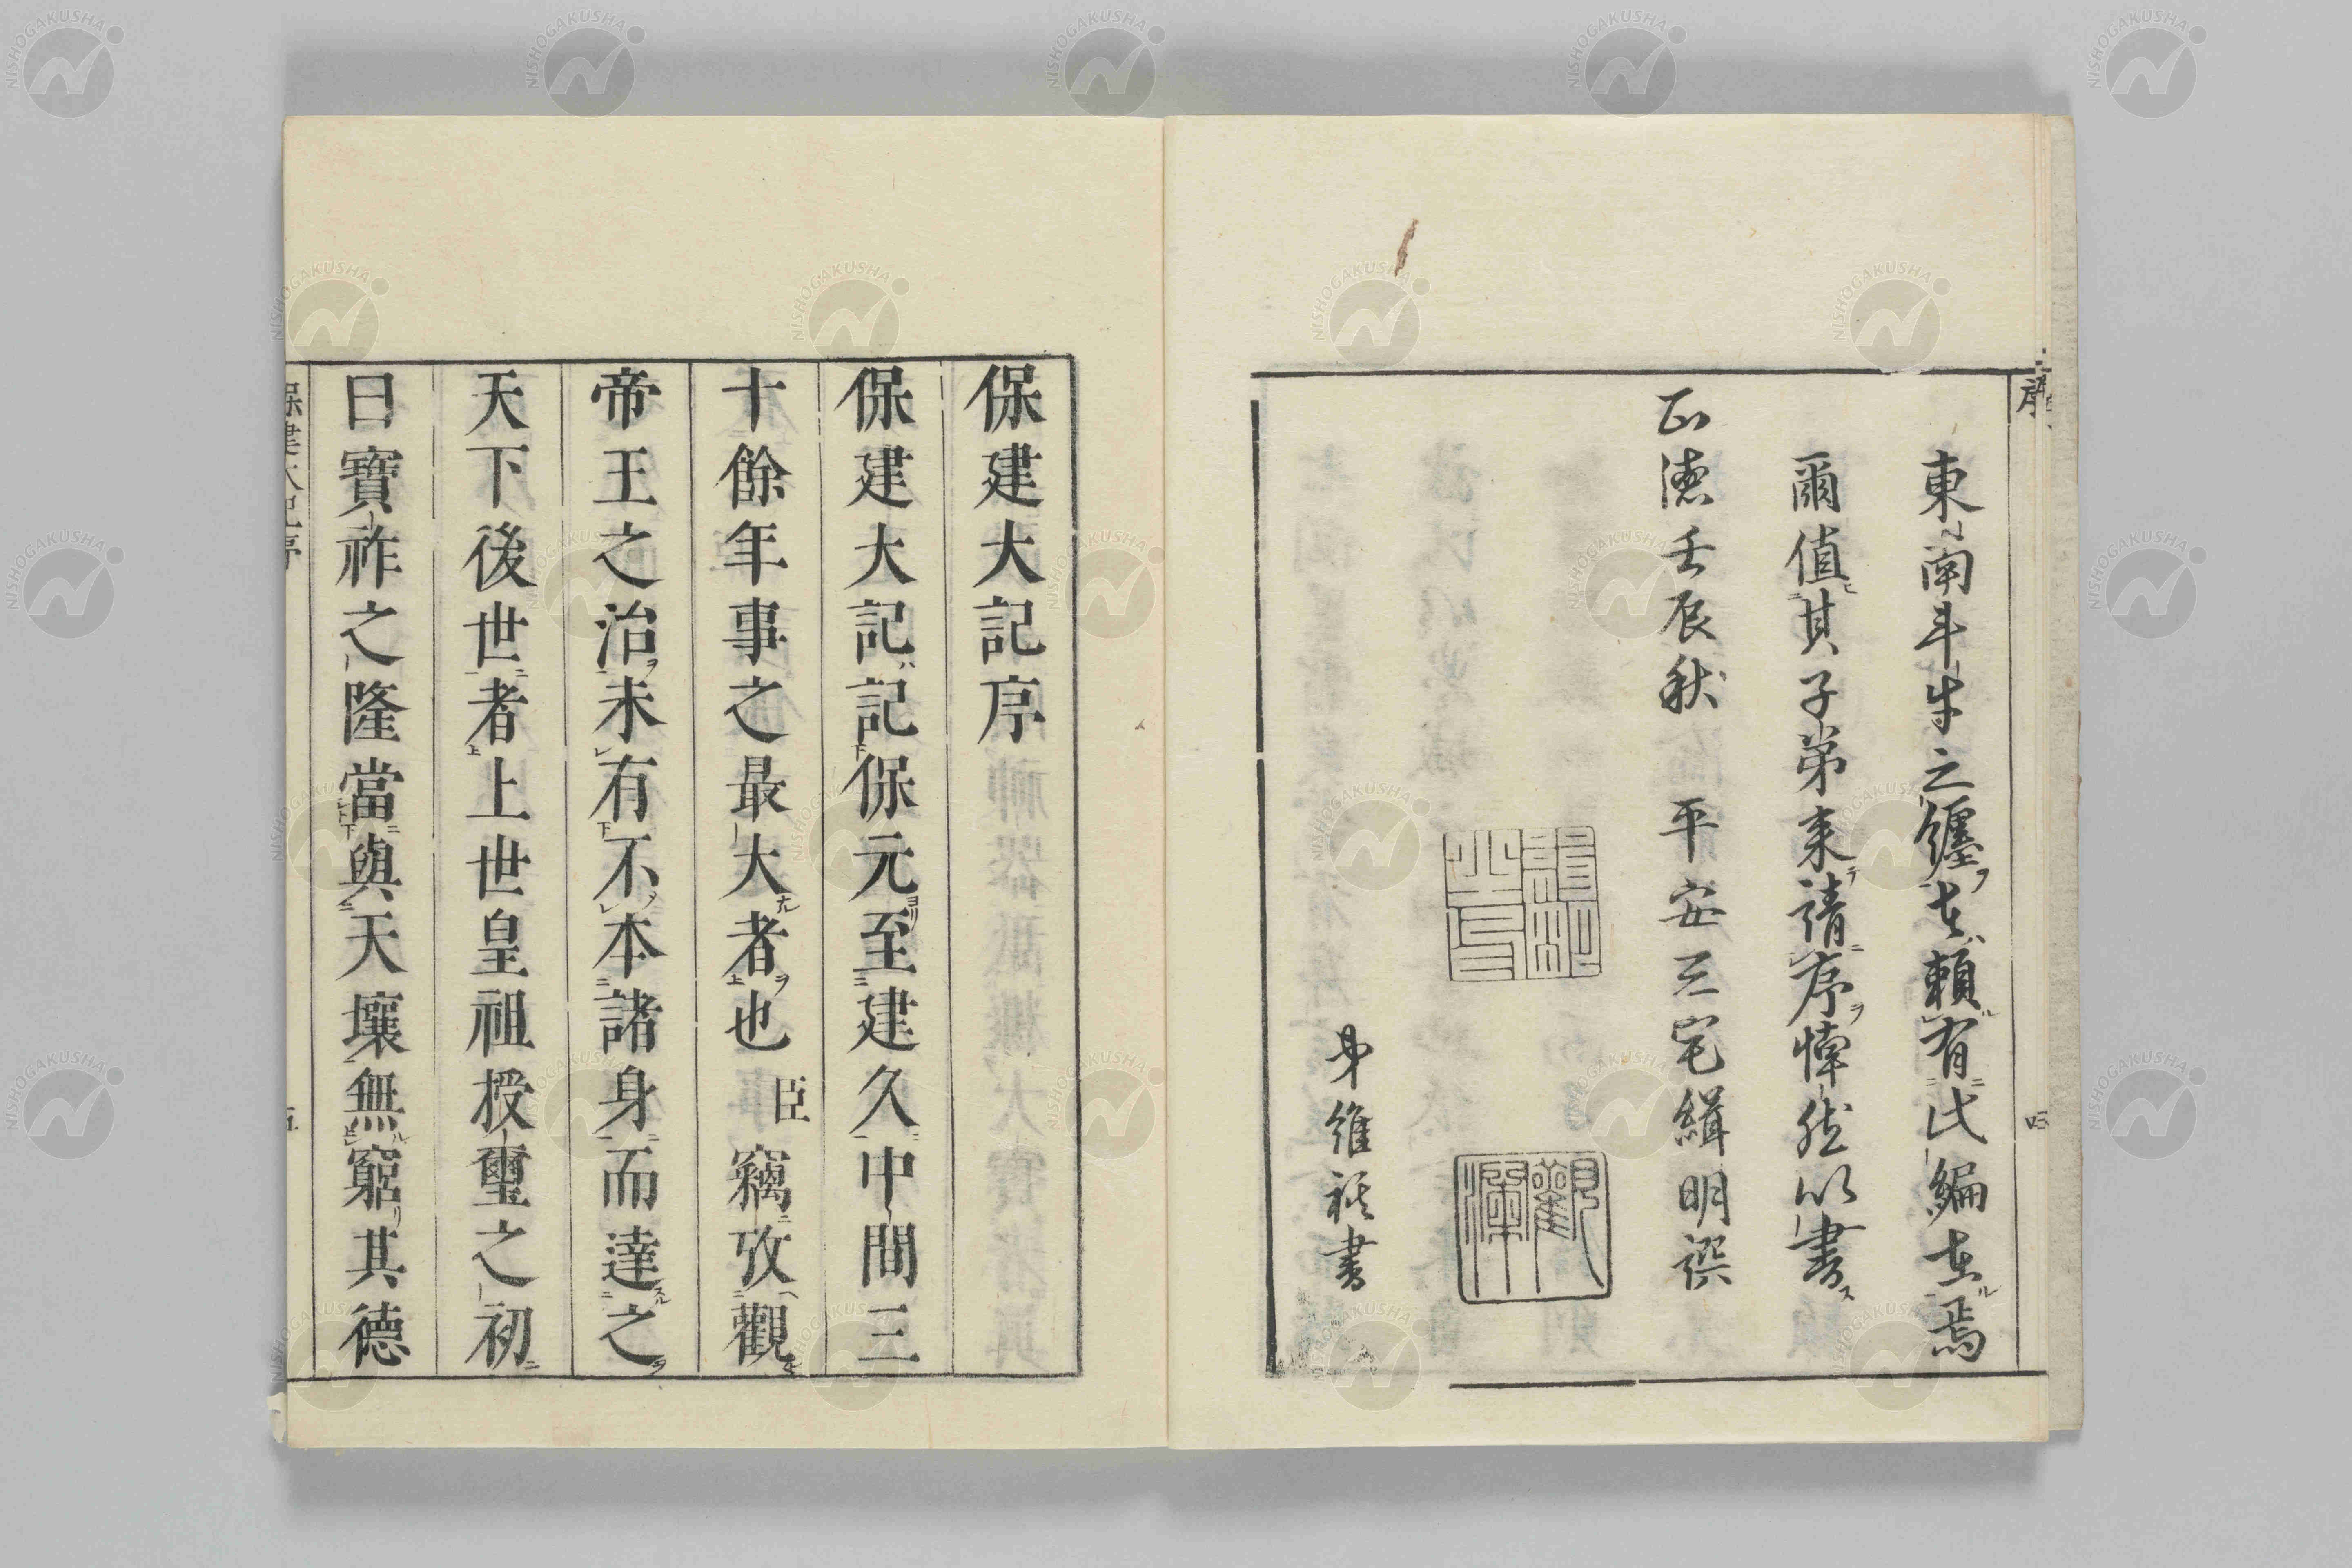 東南斗牛之纏在賴有此編在焉
爾值其子弟來請序慱然以書
正德壬辰秋 平安三宅緝明譔
弟維祺書
保建大記序
保建大記記保元至建久中間三
十餘年事之最大者也臣竊攷觀
帝王之治未有不本諸身而達之
天下後世者上世皇祖授璽之初
曰寶祚之隆當與天壤無窮其德